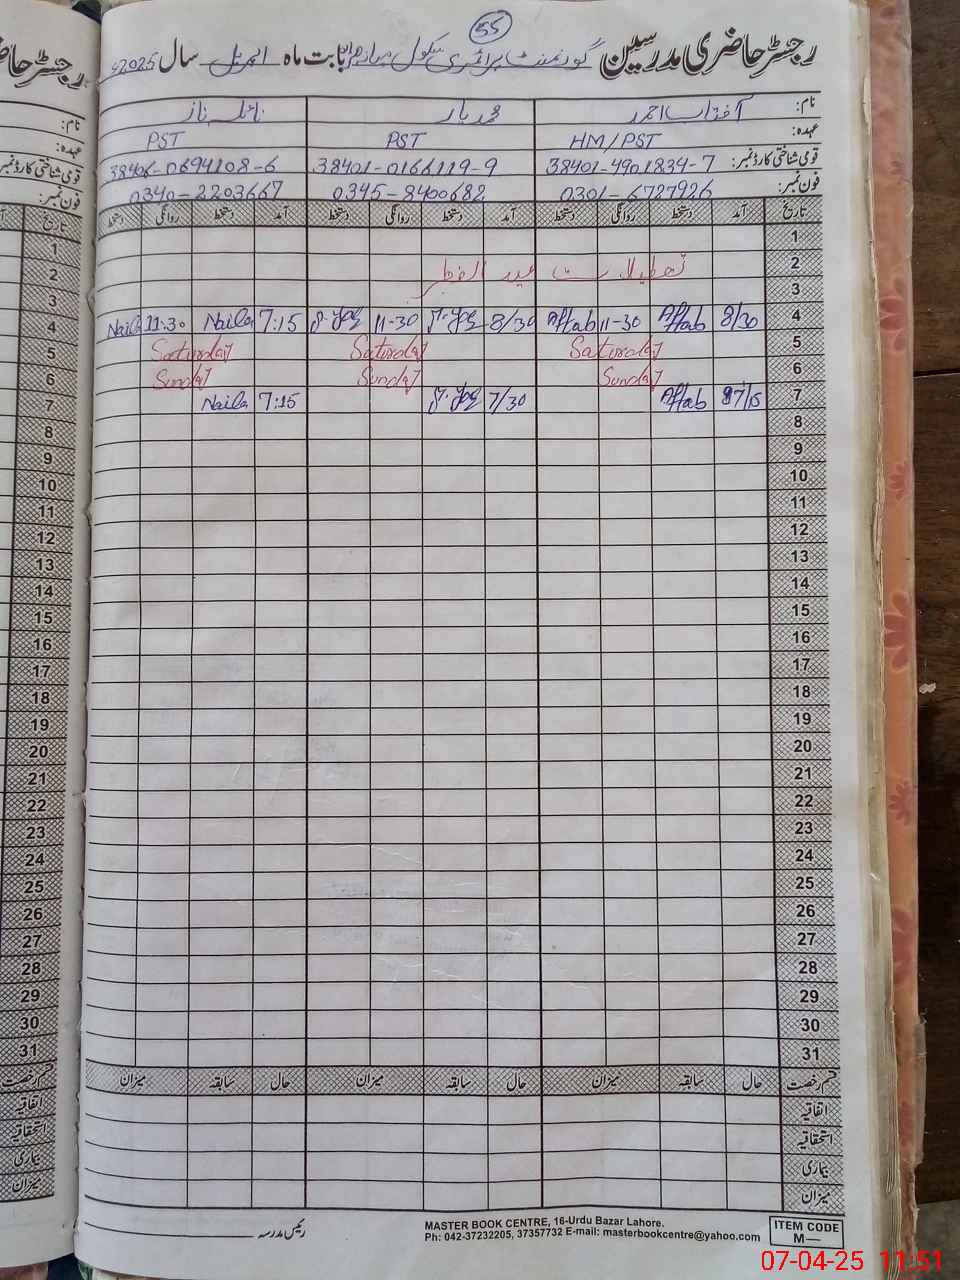 55
رجسٹر حاضری مدرسین گورنمنٹ پرائمری سکول بابت ماہ اپریل سال 2025ء
نام: آفتاب احمد محمد یار نائلہ ناز
عہدہ: HM/PST PST PST
قومی شناختی کارڈ نمبر: 38401-4901834-7 38401-0166119-9 38406-0694108-6
فون نمبر: 0301-6727926 0345-8400682 0340-2203667
تاریخ آمد دستخط روانگی دستخط آمد دستخط روانگی دستخط آمد دستخط روانگی دستخط
1
2 تعطیلات عید الفطر
3
4 8/30 Aftab 11-30 Aftab 8/30 11-30 7:15 Naila 11:30 Naila
5 Saturday Saturday Saturday
6 Sunday Sunday Sunday
7 Aftab 7/30 7:15 Naila
8
9
10
11
12
13
14
15
16
17
18
19
20
21
22
23
24
25
26
27
28
29
30
31
قسم رخصت حال سابقہ میزان حال سابقہ میزان حال سابقہ میزان
اتفاقیہ
استحقاقیہ
بیماری
میزان
رئیس مدرسہ
MASTER BOOK CENTRE, 16-Urdu Bazar Lahore.
Ph: 042-37232205, 37357732 E-mail: masterbookcentre@yahoo.com
ITEM CODE
M—
07-04-25 11:51